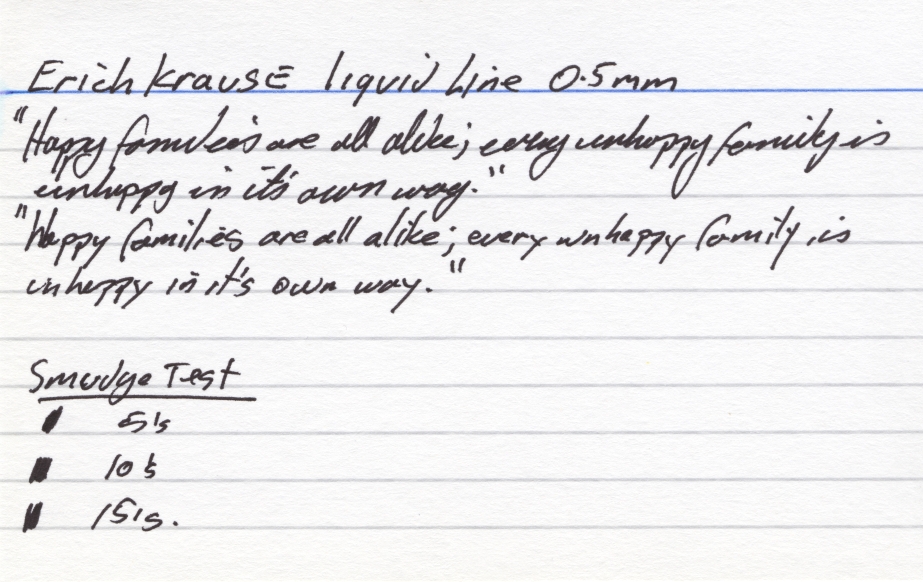 Erich Krause liquid Line 0.5mm
"Happy families are all alike; every unhappy family is
unhappy in it's own way."
"Happy families are all alike; every unhappy family is
unhappy in it's own way."
Smudge Test
5's
10's
15's.